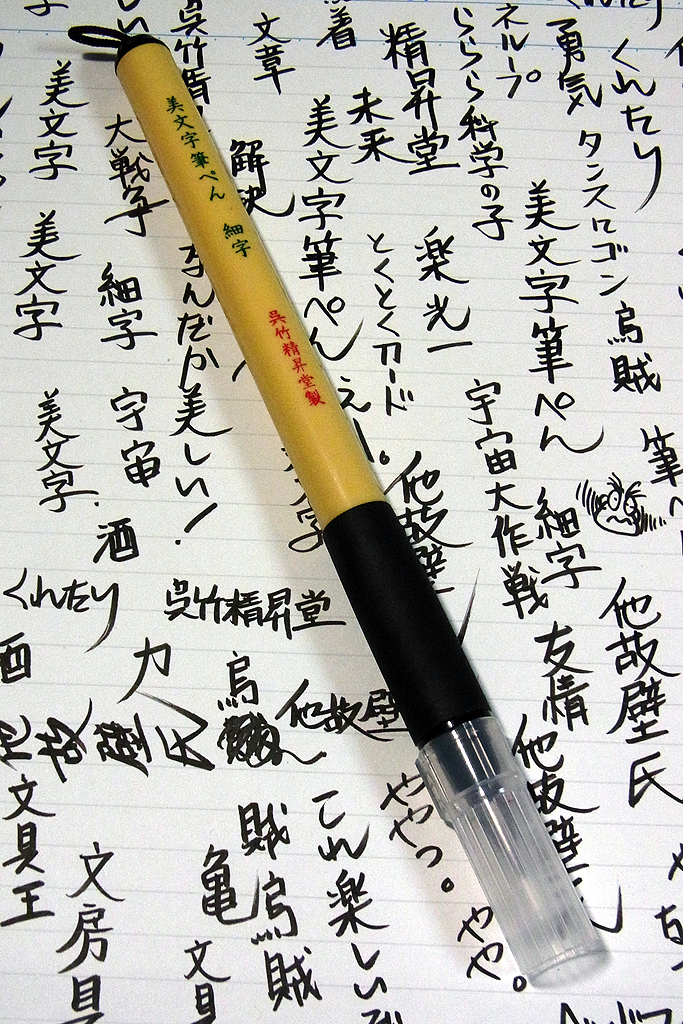 美文字筆ぺん 細字
呉竹精昇堂製
くれたり
勇気
タンスにゴン
烏賊
ネループ
らららら科学の子
美文字筆ぺん
細字
友情
精昇堂
楽光一
宇宙大作戦
他故壁氏
着
未来
とくとくカード
えー。
文章
美文字筆ぺん
解決
なんだか美しい!
大戦争
細字
宇宙
酒
美文字
美文字
美文字
くれたり
呉竹精昇堂
力
酒
烏
他故壁
他故壁氏
ややっ。
やや。
これ楽しい
賊烏賊
亀
文具
文房具
文具王